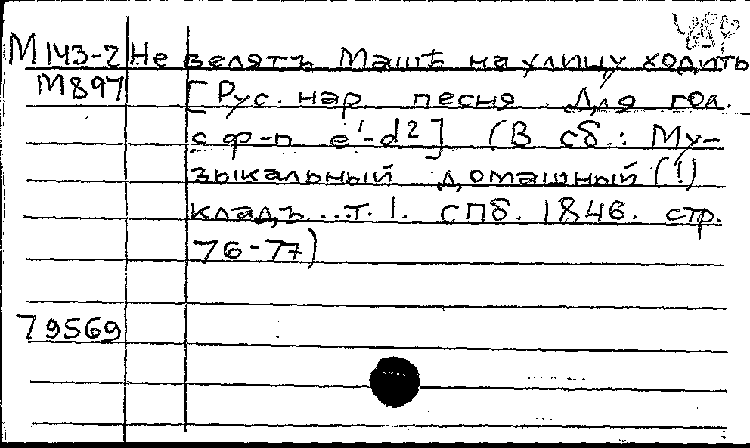 М143-2 Не велятъ Машѣ на улицу ходить
М897 [Рус. нар. песня. Для гол.
с ф-п e¹-d²] (В сб.: Му-
зыкальный домашный (!)
кладъ...т.1. СПб. 1846. стр.
76-77)
79569